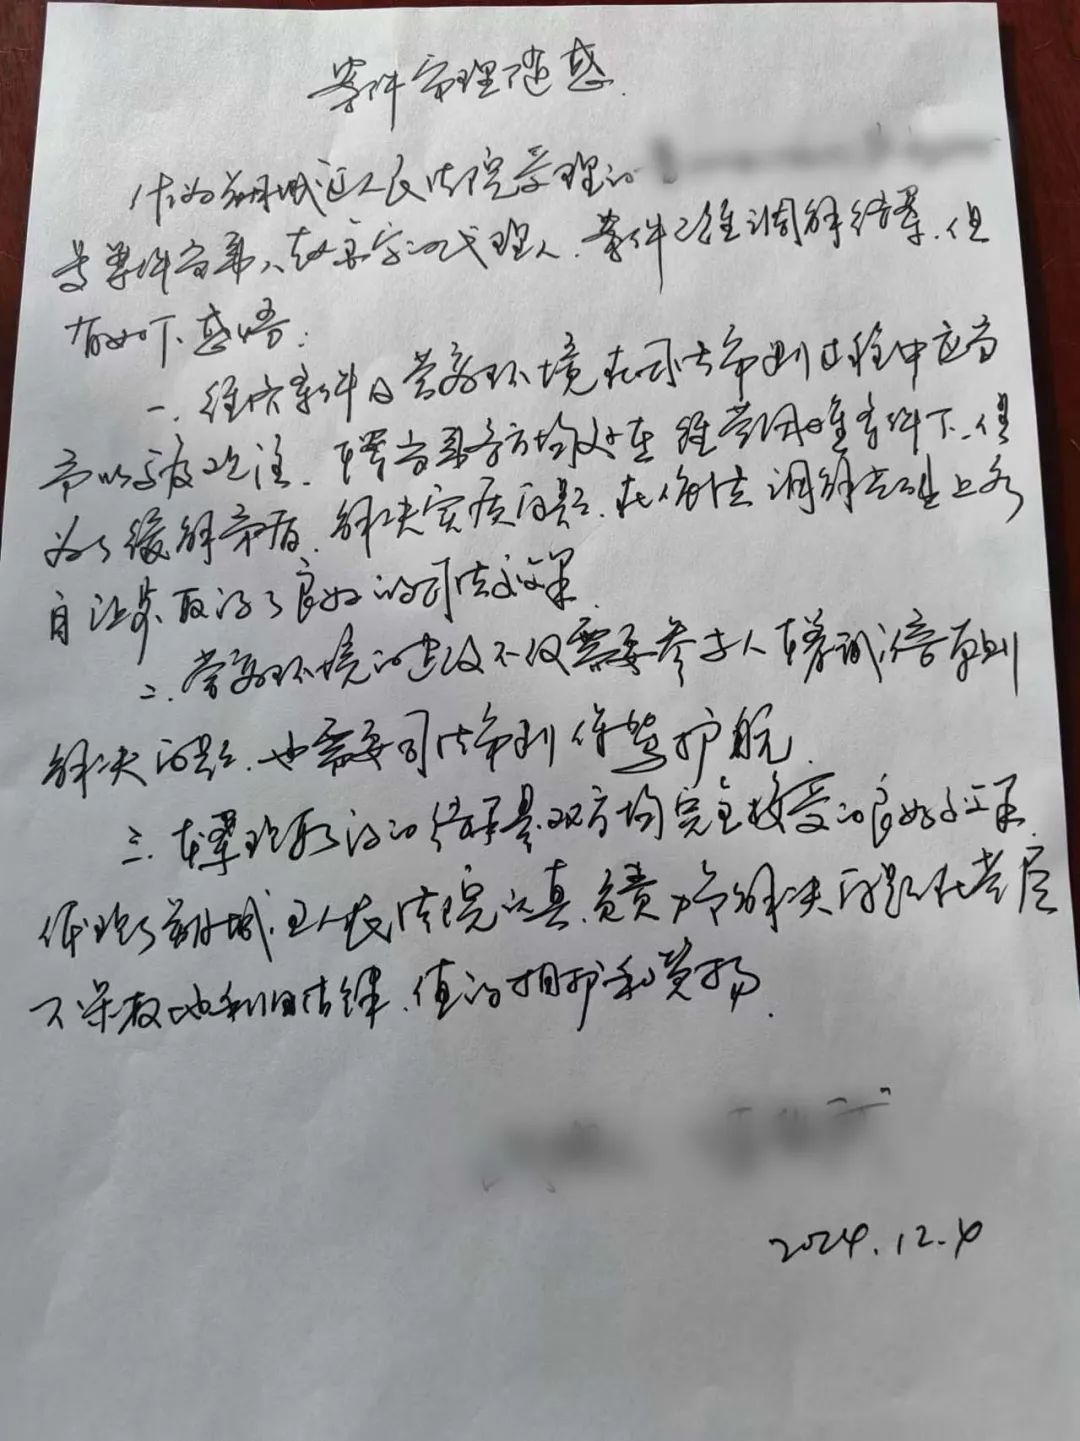 案件审理随感
作为朔城区人民法院受理的
号案件当事人 代理人、案件已经调解结案、但
有如下感悟：
一、经济案件及营商环境在司法审判过程中应当
予以高度关注、本案当事方均处在经营困难条件下、但
为了缓解矛盾、解决实质问题、在依法调解基础上各
自让步、取得了良好的司法效果
二、营商环境的建设不仅需要参与人本着诚信原则
解决问题、也需要司法审判保驾护航
三、本案取得的结果是双方均完全接受的良好结果
体现了朔城区人民法院认真、负责、为解决问题
值得拥护和赞扬
2024.12.4